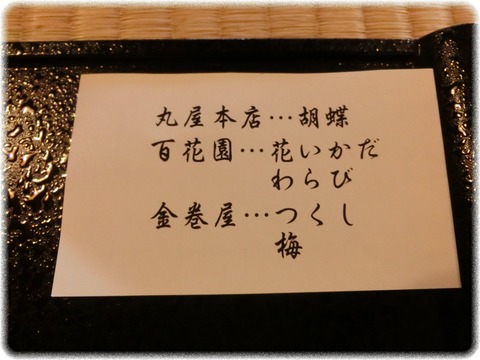 丸屋本店…胡蝶
百花園…花いかだ
わらび
金巻屋…つくし
梅